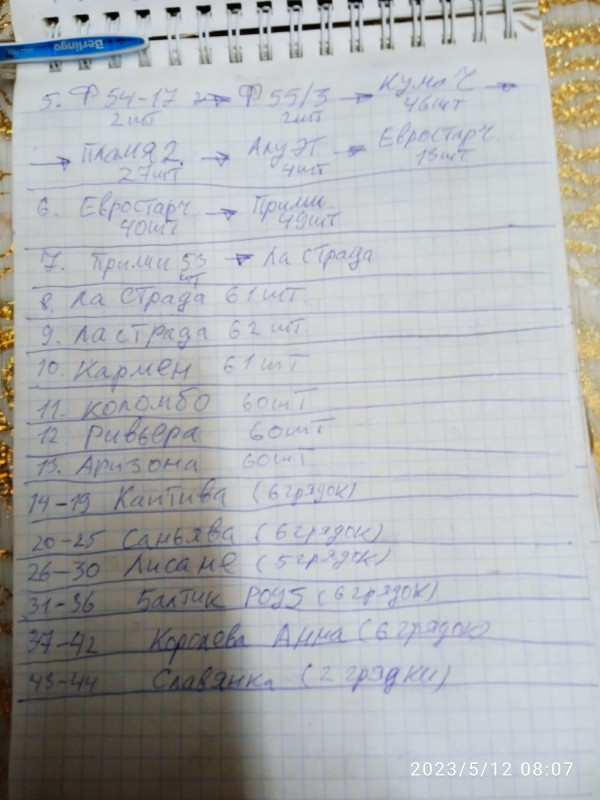 Berlingo
5. Ф 54-17 → Ф 55/3 → Кума Ч →
2шт 2шт 46шт
→ Пламя 2 → Алуэт → Евростарч
27шт 4шт 13шт
6. Евростарч → Примы
40шт 49шт
7. Примы 53 шт → Ла Страда
8. Ла Страда 61шт
9. Ла страда 62 шт
10. Кармен 61шт
11. Коломбо 60шт
12 Ривьера 60шт
13. Аризона 60шт
14-19 Каптива (6 грядок)
20-25 Саньява (6 грядок)
26-30 Лисана (5 грядок)
31-36 Балтик Роуз (6 грядок)
37-42 Королева Анна (6 грядок)
43-44 Славянка (2 грядки)
2023/5/12 08:07